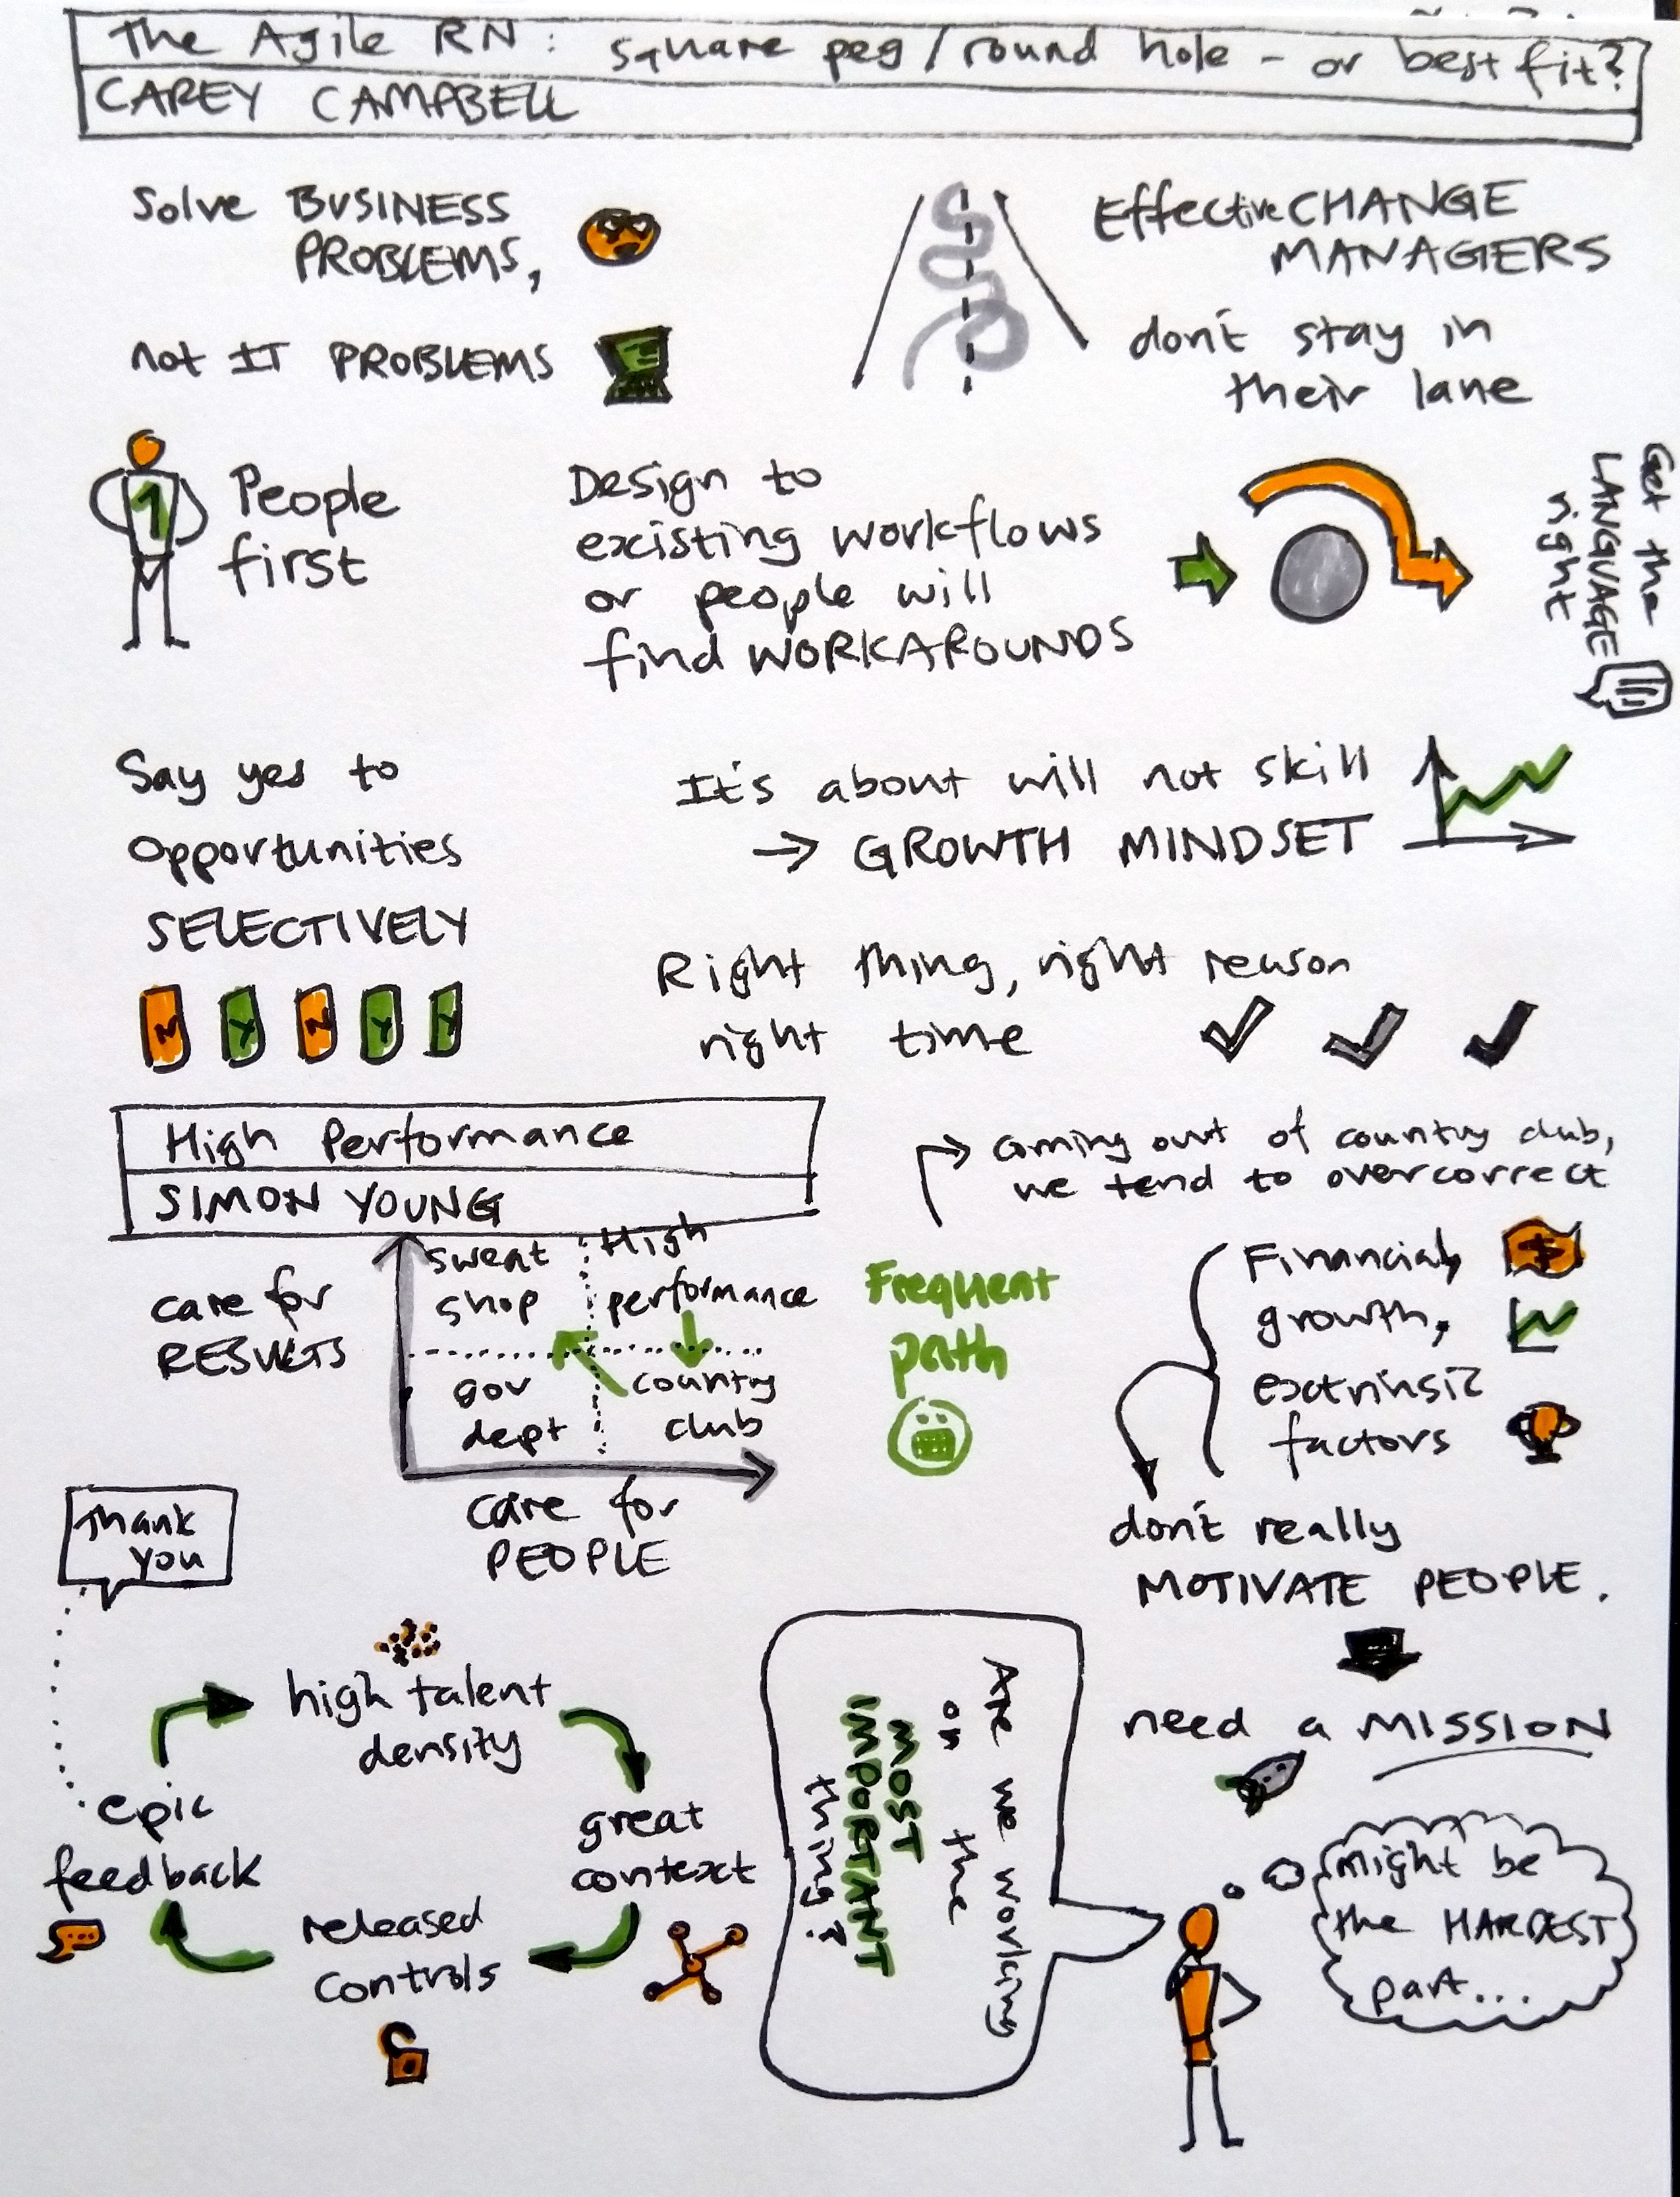 The Agile RN: square peg/round hole - or best fit?
CAREY CAMPBELL
Solve BUSINESS
PROBLEMS,
not IT PROBLEMS
Effective CHANGE
MANAGERS
don't stay in
their lane
1
People
first
Design to
existing workflows
or people will
find WORKAROUNDS
Get the
LANGUAGE
right
Say yes to
opportunities
SELECTIVELY
N Y N Y Y
It's about will not skill
→ GROWTH MINDSET
Right thing, right reason
right time
High Performance
SIMON YOUNG
care for
RESULTS
sweat
shop
High
performance
gov
dept
country
club
care for
PEOPLE
Frequent
path
coming out of country club,
we tend to overcorrect
Financial,
$
growth,
extrinsic
factors
don't really
MOTIVATE PEOPLE.
need a MISSION
might be
the HARDEST
part...
Are we working
on the
MOST
IMPORTANT
thing?
Thank
you
high talent
density
great
context
released
controls
epic
feedback